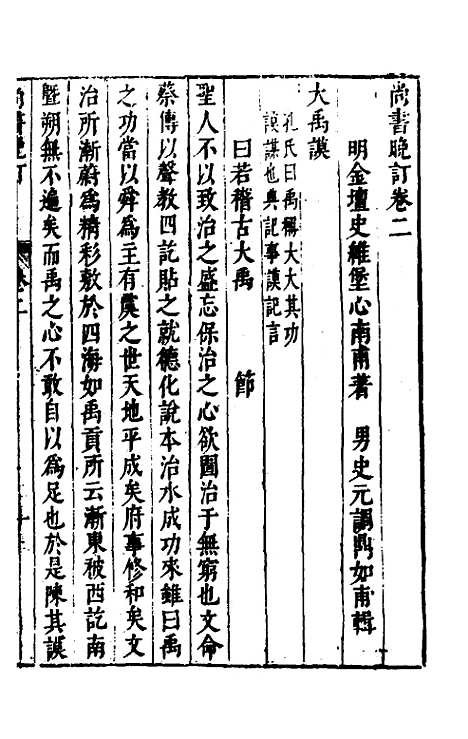 尚書晚訂卷二
明金壇史維堡心南甫著 男史元調鼎如甫輯
大禹謨
孔氏曰禹稱大大其功
謨謀也典記事謨記言
曰若稽古大禹 節
聖人不以致治之盛忘保治之心欲圖治于無窮也文命
蔡傳以聲教四訖貼之就德化說本治水成功來雖曰禹
之功當以舜為主有虞之世天地平成矣府事修和矣文
治所漸蔚為精彩敷於四海如禹貢所云漸東被西訖南
暨朔無不遍矣而禹之心不敢自以為足也於是陳其謨
尚書晚訂 卷二